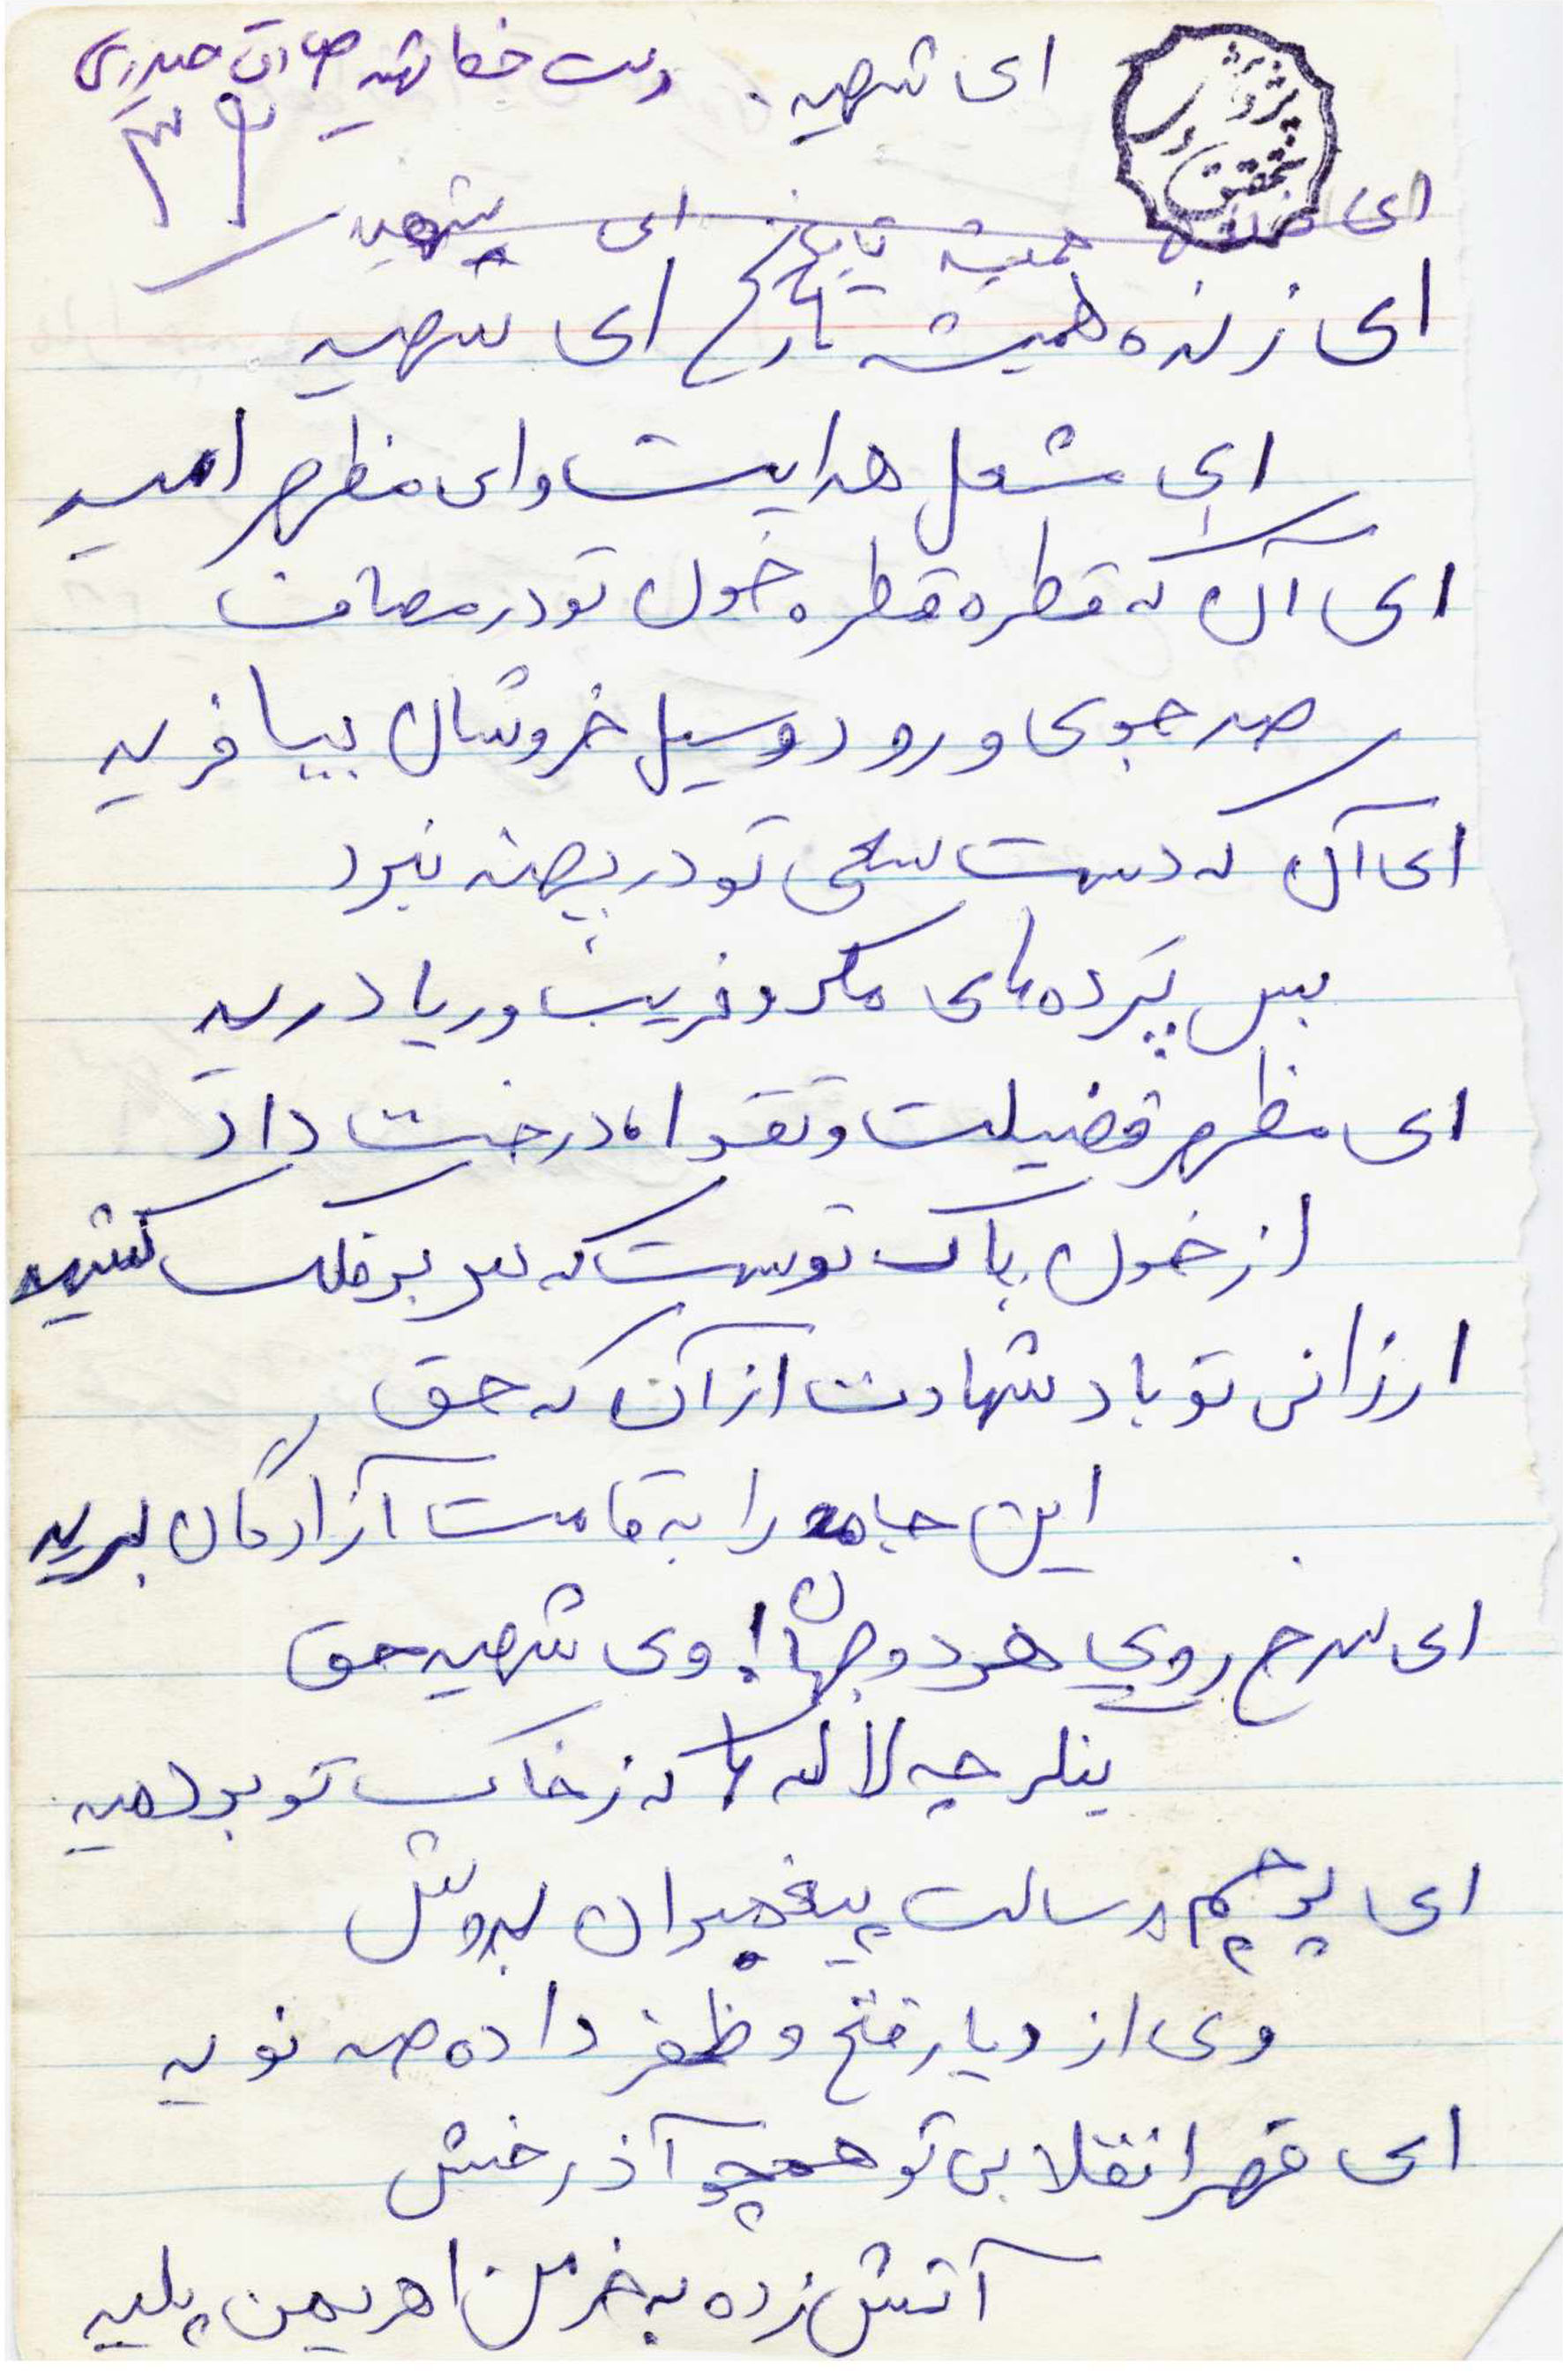 ای شهید. دست خط شهید صادق حیدری
۳۹
پژوهش و تحقیق
ای همیشه تاریخ ای شهید
ای زنده همیشه تاریخ ای شهید
ای مشعل هدایت و ای مظهر امید
ای آن که قطره قطره خون تو در مصاف
صد جوی و رود و سیل خروشان بیافرید
ای آن که دست سعی تو در پهنه نبرد
بس پرده های مکر و فریب و ریا درید
ای مظهر فضیلت و تقوا، درخت داد
از خون پاک توست که سر بر فلک کشید
ارزانی تو باد شهادت از آن که حق
این جامه را به قامت آزادگان برید
ای سرخ روی هر دو جهان! وی شهید حق
بنگر چه لاله ها که ز خاک تو بردمید
ای پرچم رسالت پیغمبران بدوش
وی از دیار فتح و ظفر داده صد نوید
ای قهر انقلابی تو همچو آذرخش
آتش زده به خرمن اهریمن پلید